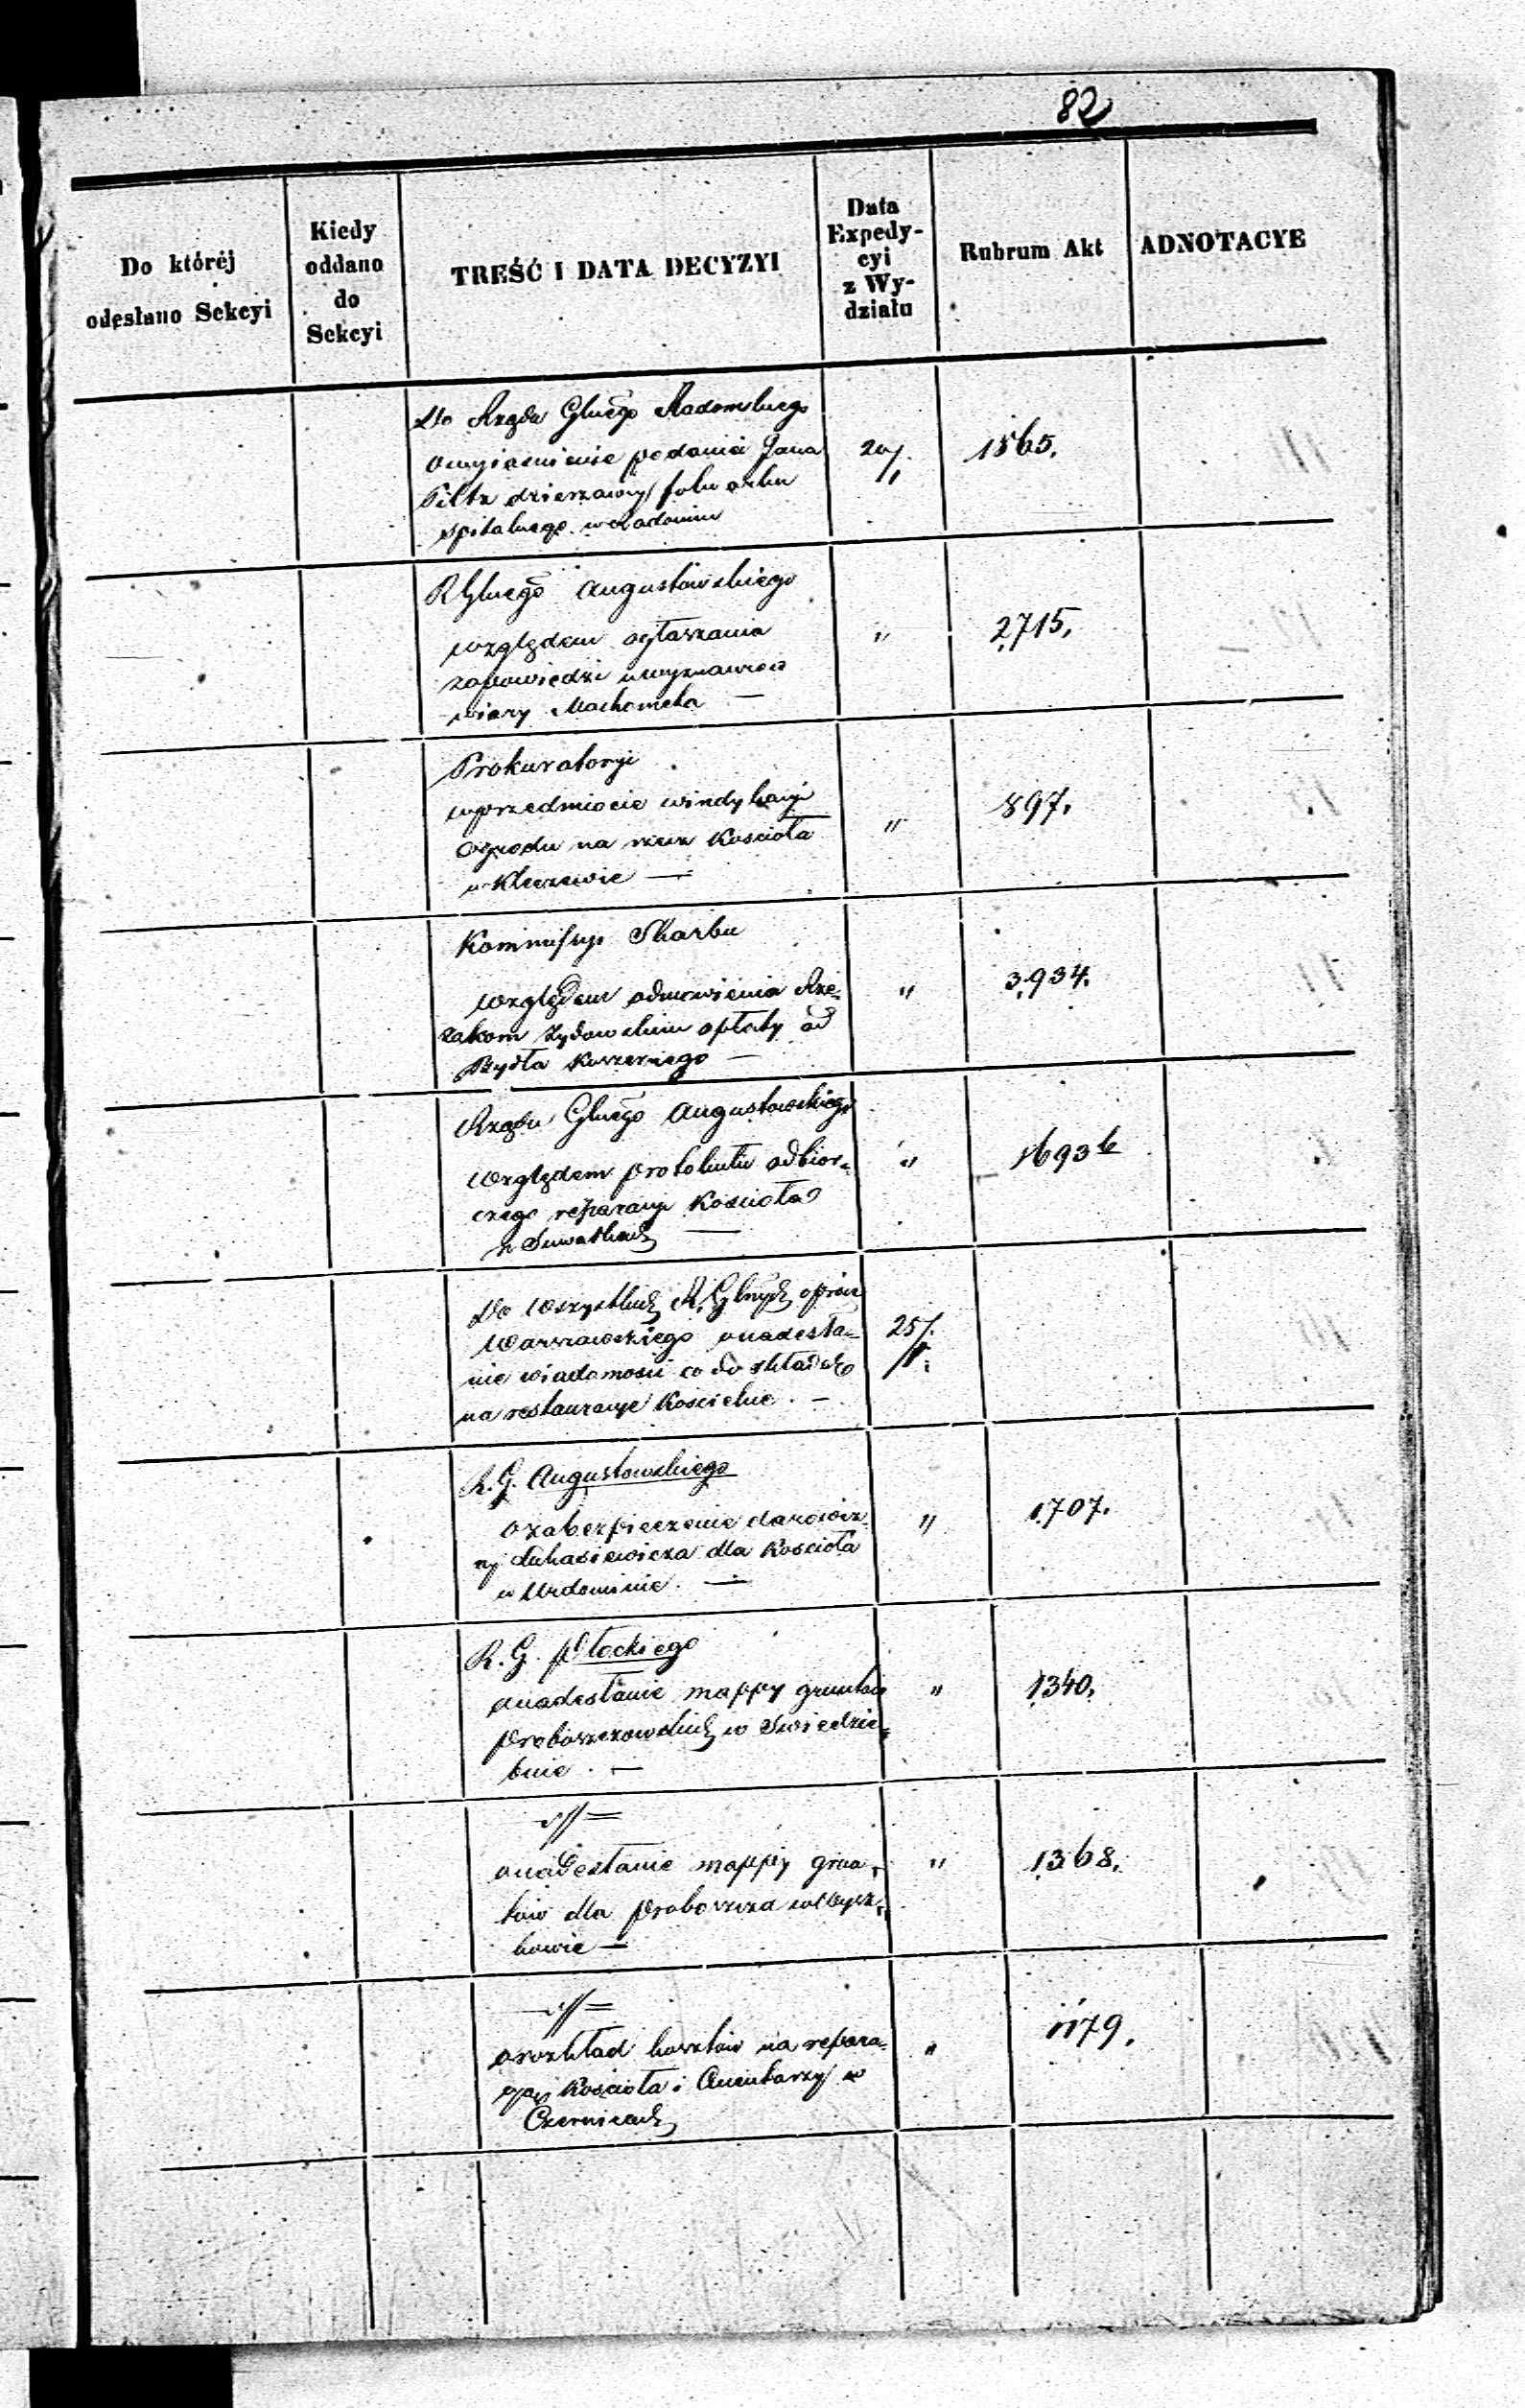 82
Do któréj
odesłano Sekcyi
Kiedy
oddano
do
Sekcyi
TREŚĆ I DATA DECYZYI
Data
Expedy-
cyi
z Wy-
działu
Rubrum Akt
ADNOTACYE
Do Rządu Glnego Radomskiego
o wyjasnienie podania Jana
Piltz dzierzawcy folwarku
szpitalnego w Radomiu
20/.
1565.
R Glnego Augustowskiego
względem ogłaszania
zapowiedzi u wyznawców
wiary Machometa —
"
2,715.
Prokuratoryi
w przedmiocie windykacyi
Ogrodu na rzecz Kościoła
w Kleczewie —
"
897.
Kommissyi Skarbu
względem odmówienia Rze-
zakom Żydowskim opłaty od
Bydła Koszernego —
"
3,934.
Rządu Glnego Augustowskiego
względem protokułu odbior-
czego reparacyi Kościoła
w Suwałkach —
"
1693 b
Do wszystkich R. Glnych oprócz
Warszawskiego o nadesła-
nie wiadomości co do składek
na restauracye Kościelne . —
25/.
R. G. Augustowskiego
o zabezpieczenie darowiz-
ny Łukasiewicza dla Kościoła
w Urdominie. —
"
1,707.
R. G. Płockiego
o nadesłanie mappy gruntów
Proboszczowskich w Swiedzie-
bnie . —
"
1340.
o nadesłanie mappy grun-
tów dla Proboszcza
kowie —
"
1368.
o rozkład kosztów na repara-
cyą Kościoła i Cmentarzy w
Czernicach
"
1179.